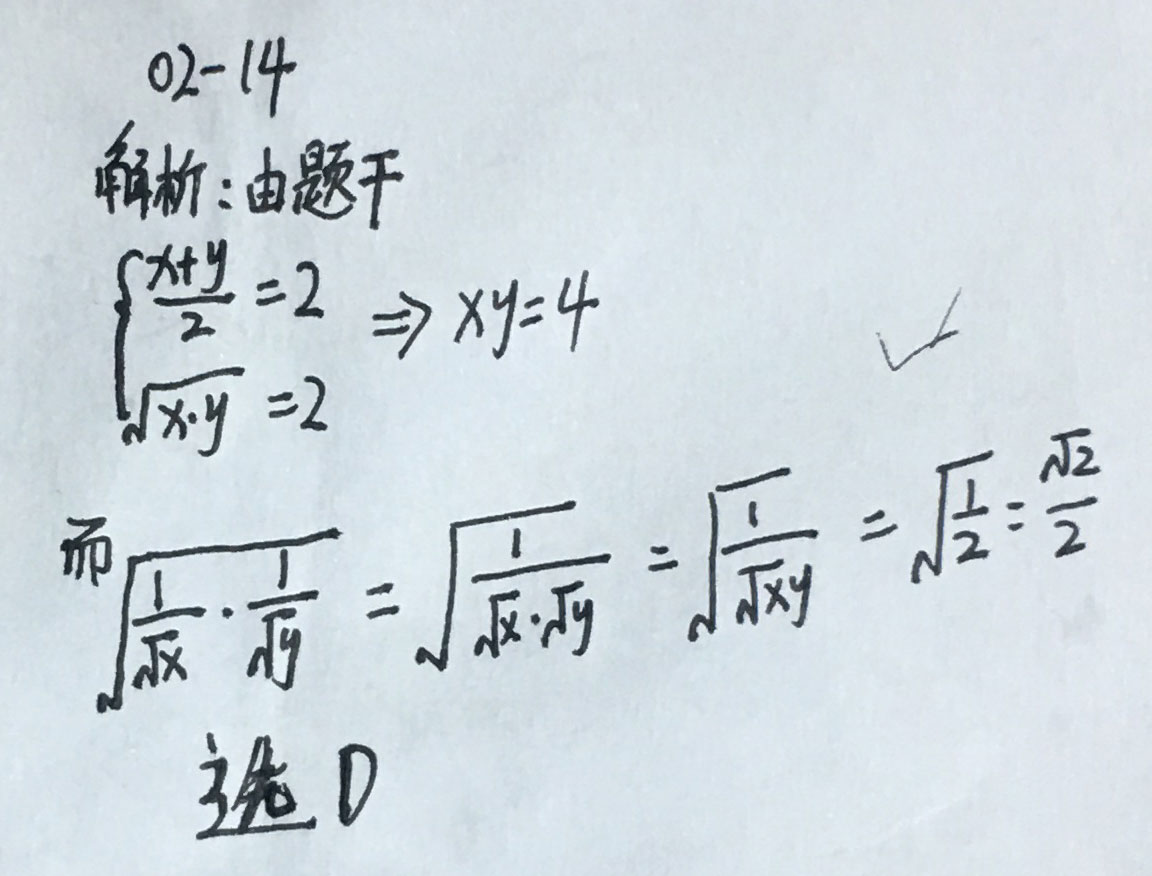 02-14
解析:由题干
{ (x+y)/2 = 2 ⇒ xy=4
√(x·y) = 2
而 √(1/√x · 1/√y) = √(1/(√x·√y)) = √(1/√xy) = √(1/2) = √2/2
选 D